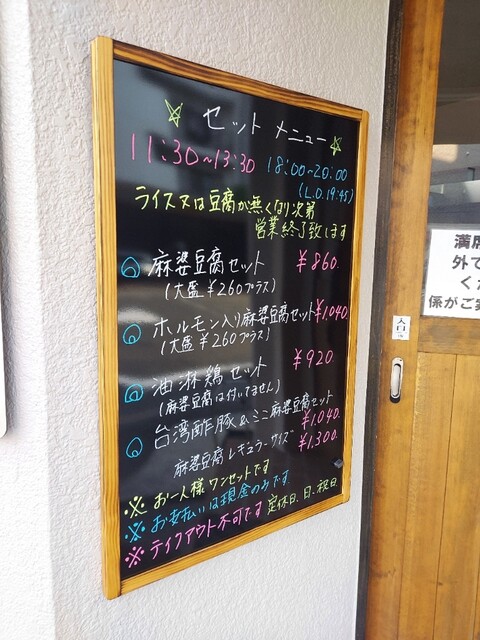 セット メニュー
11:30~13:30 18:00~20:00
(L.O.19:45)
ライス又は豆腐が無くなり次第
営業終了致します
麻婆豆腐セット ¥860.
(大盛¥260プラス)
ホルモン入り麻婆豆腐セット ¥1,040.
(大盛¥260プラス)
油淋鶏セット ¥920.
(麻婆豆腐は付いてません)
台湾酢豚&ミニ麻婆豆腐セット
¥1,040.
麻婆豆腐レギュラーサイズ ¥1,300.
※ お一人様ワンセットです
※ お支払いは現金のみです
※ テイクアウト不可です 定休日.日.祝日
満席
外で
くだ
係がご案
入口